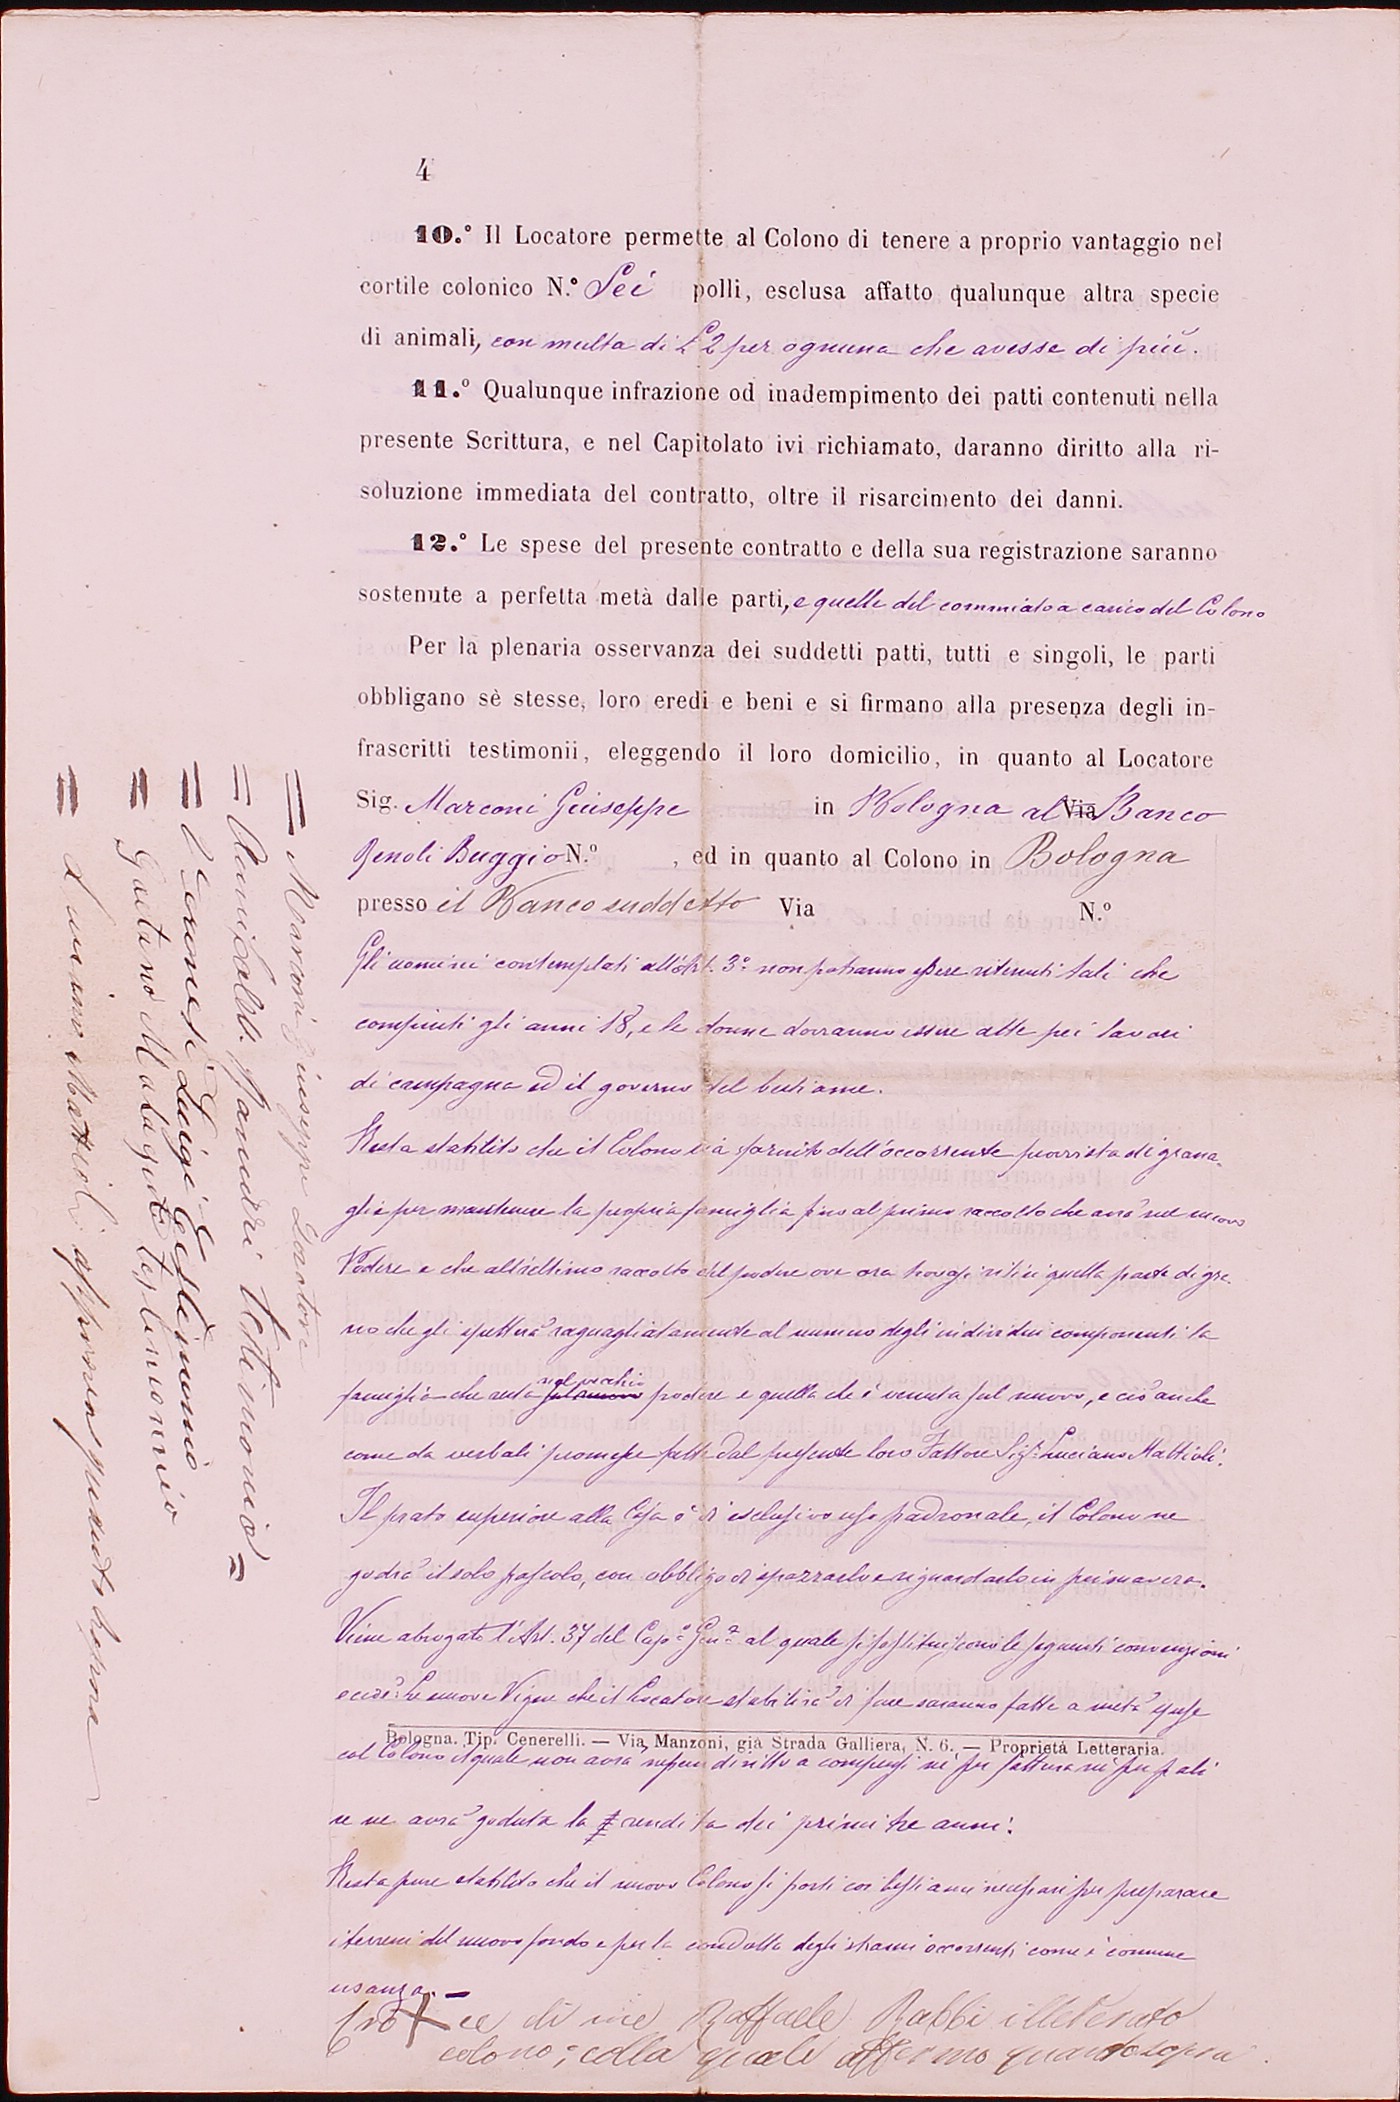 4
10.° Il Locatore permette al Colono di tenere a proprio vantaggio nel
cortile colonico N.° Sei polli, esclusa affatto qualunque altra specie
di animali, con multa di £ 2 per ognuna che avesse di più.
11.° Qualunque infrazione od inadempimento dei patti contenuti nella
presente Scrittura, e nel Capitolato ivi richiamato, daranno diritto alla ri-
soluzione immediata del contratto, oltre il risarcimento dei danni.
12.° Le spese del presente contratto e della sua registrazione saranno
sostenute a perfetta metà dalle parti, e quelle del commiato a carico del Colono
Per la plenaria osservanza dei suddetti patti, tutti e singoli, le parti
obbligano sè stesse, loro eredi e beni e si firmano alla presenza degli in-
frascritti testimonii, eleggendo il loro domicilio, in quanto al Locatore
Sig. Marconi Giuseppe in Bologna al Via Banco
Renoli Buggio N.° , ed in quanto al Colono in Bologna
presso il Banco suddetto Via N.°
Gli uomini contemplati all'Art. 3° non potranno essere ritenuti tali che
compiuti gli anni 18, e le donne dovranno essere atte pei lavori
di campagna ed il governo del bestiame.
Resta stabilito che il Colono sia fornito dell'occorrente provvista di grana-
glie per mantenere la propria famiglia fino al primo raccolto che avrà nel nuovo
Podere e che all'ultimo raccolto del podere ove ora trovasi ritiri quella parte di gra-
no che gli spetterà ragguagliatamente al numero degli individui componenti la
famiglia che resta sul nuovo nel vecchio podere e quella che è venuta sul nuovo, e ciò anche
come da verbali promesse fatte dal presente loro Fattore Sig.r Luciano Mattioli.
Il prato superiore alla Casa è di esclusivo uso padronale, il Colono ne
godrà il solo pascolo, con obbligo di spazzarlo e riguardarlo in primavera.
Viene abrogato l'Art. 37 del Cap.° Gen.e al quale si sostituiscono le seguenti convenzioni
e cioè: Le nuove Vigne che il Locatore stabilirà di fare saranno fatte a metà spese
Bologna. Tip. Cenerelli. — Via Manzoni, già Strada Galliera, N. 6. — Proprietà Letteraria.
col Colono il quale non avrà nessun diritto a compensi nè per fattura nè per pali
se ne avrà goduta la rendita dei primi tre anni.
Resta pure stabilito che il nuovo Colono si porti coi bestiami necessari per preparare
i terreni del nuovo fondo e per la condotta degli strami occorrenti come è comune
usanza. —
Cro + ce di me Raffaele Babbi illeterato
colono; colla quale affermo quanto sopra.
= Marconi Giuseppe Locatore
= testimonio =
= Luigi Testimonio
= Gaetano Malaguti testimonio
= Luciano Mattioli affermo quanto sopra